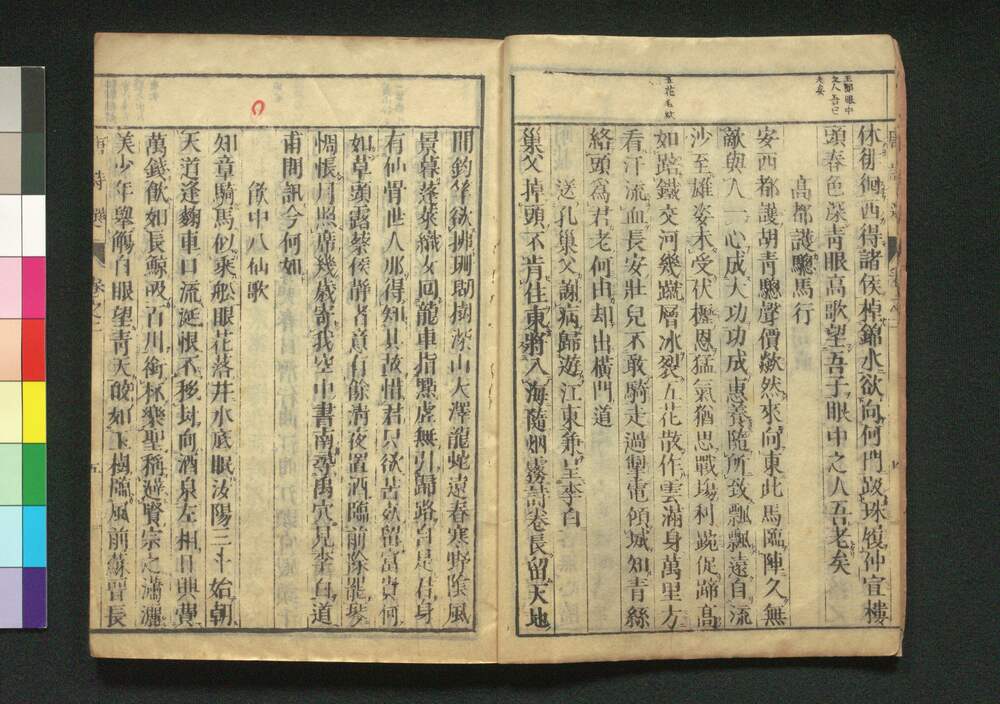 休徘徊西得諸侯棹錦水欲向何門趿珠履仲宣樓
頭春色深青眼高歌望吾子眼中之人吾老矣
高都護驄馬行
安西都護胡青驄聲價歘然來向東此馬臨陣久無
敵與人一心成大功功成惠養隨所致飄飄遠自流
沙至雄姿未受伏櫪恩猛氣猶思戰場利踠促蹄高
如踣鐵交河幾蹴層冰裂五花散作雲滿身萬里方
看汗流血長安壯兒不敢騎走過掣電傾城知青絲
絡頭為君老何由却出橫門道
送孔巢父謝病歸遊江東兼呈李白
巢父掉頭不肯住東將入海隨烟霧詩卷長留天地
間釣竿欲拂珊瑚樹深山大澤龍蛇遠春寒野陰風
景暮蓬萊織女回龍車指點虛無引歸路自是君身
有仙骨世人那得知其故惜君只欲苦死留富貴何
如草頭露蔡侯静者意有餘清夜置酒臨前除罷琴
惆悵月照席幾歲寄我空中書南尋禹穴見李白道
甫問訊今何如
飲中八仙歌
知章騎馬似乘船眼花落井水底眠汝陽三斗始朝
天道逢麴車口流涎恨不移封向酒泉左相日興費
萬錢飲如長鯨吸百川銜杯樂聖稱避賢宗之瀟灑
美少年舉觴白眼望青天皎如玉樹臨風前蘇晉長
唐詩選
卷之二
五